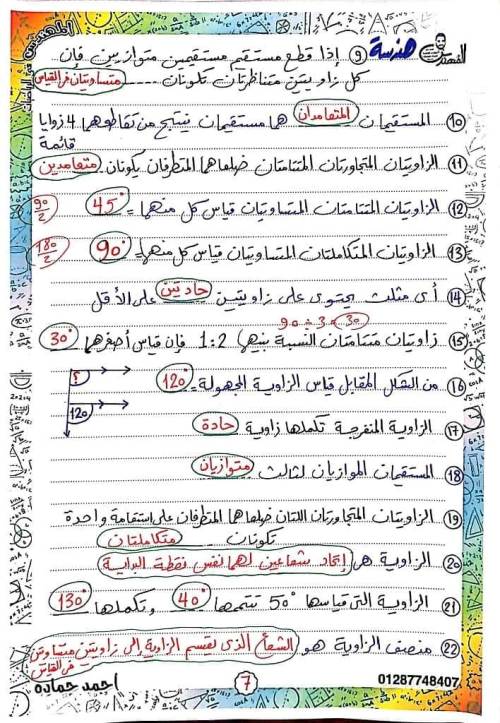 هندسة
٩ إذا قطع مستقيم مستقيمين متوازيين فإن
كل زاويتين متناظرتان تكونان متساويتان في القياس
١٠ المستقيمان المتعامدان هما مستقيمان ينتج من تقاطعهما 4 زوايا
قائمة
١١ الزاويتان المتجاورتان المتتامتان ضلعاهما المتطرفان يكونان متعامدين
١٢ الزاويتان المتتامتان المتساويتان قياس كل منهما = 45° 90/2
١٣ الزاويتان المتكاملتان المتساويتان قياس كل منهما = 90° 180/2
١٤ أى مثلث يحتوى على زاويتين حادتين على الأقل
90 ÷ 3 = 30
١٥ زاويتان متتامتان النسبة بينهما 1:2 فإن قياس أصغرهما 30°
١٦ من الشكل المقابل قياس الزاوية المجهولة = 120°
؟
120
١٧ الزاوية المنفرجة تكملها زاوية حادة
١٨ المستقيمان الموازيان لثالث متوازيان
١٩ الزاويتان المتجاورتان اللتان ضلعاهما المتطرفان على استقامة واحدة
تكونان متكاملتان
٢٠ الزاوية هى إتحاد شعاعين لهما نفس نقطة البداية
٢١ الزاوية التى قياسها 50° تتممها 40° وتكملها 130°
٢٢ منصف الزاوية هو الشعاع الذى يقسم الزاوية إلى زاويتين متساويتين
فى القياس
احمد حماده
7
01287748407